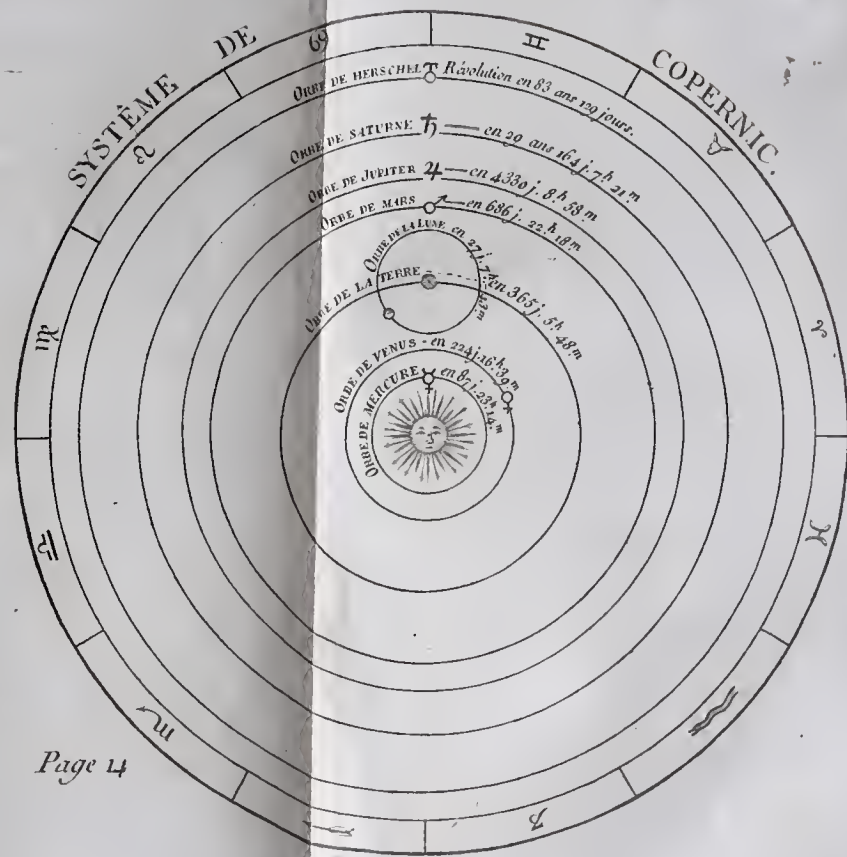 SYSTÊME DE COPERNIC.
ORBE DE HERSCHEL Révolution en 83 ans 129 jours.
ORBE DE SATURNE ♄ — en 29 ans 164 j. 7h 21m
ORBE DE JUPITER ♃ — en 4330 j. 8h 58m
ORBE DE MARS ♂ — en 686 j. 22h 18m
ORBE DE LA LUNE en 27 j. 7h 43m
ORBE DE LA TERRE - en 365 j. 5h 48m
ORBE DE VENUS - en 224 j. 16h 39m
ORBE DE MERCURE ☿ en 87 j. 23h 14m
Page 14